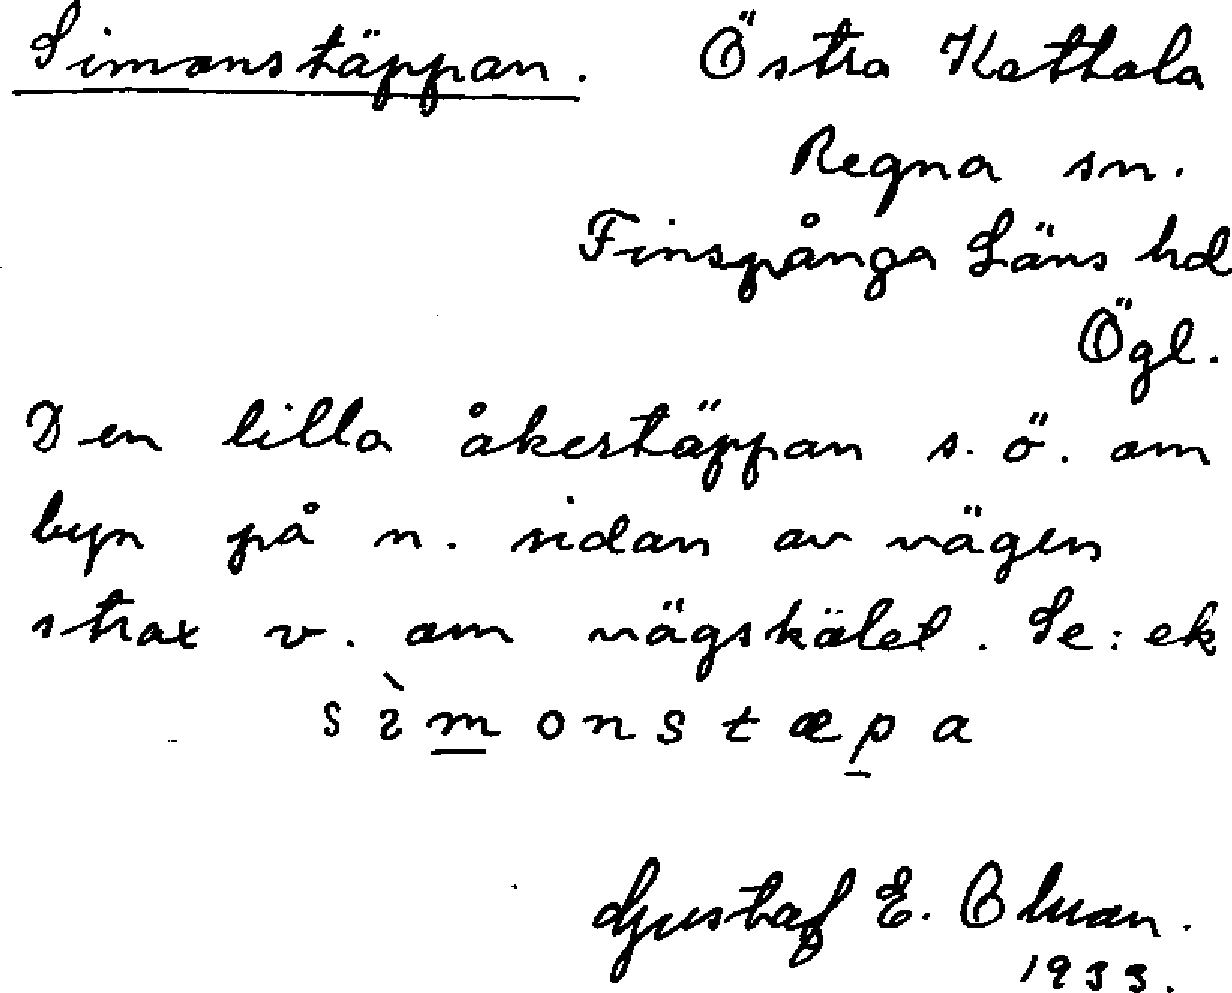 Simonstäppan. Östra Kathala
Regna sn.
Finspånga Läns hd
Ögl.
Den lilla åkertäppan s. ö. om
byn på n. sidan av vägen
strax v. om vägskälet. Se: ek
sìmonstæpa
Gustaf E.
1933.